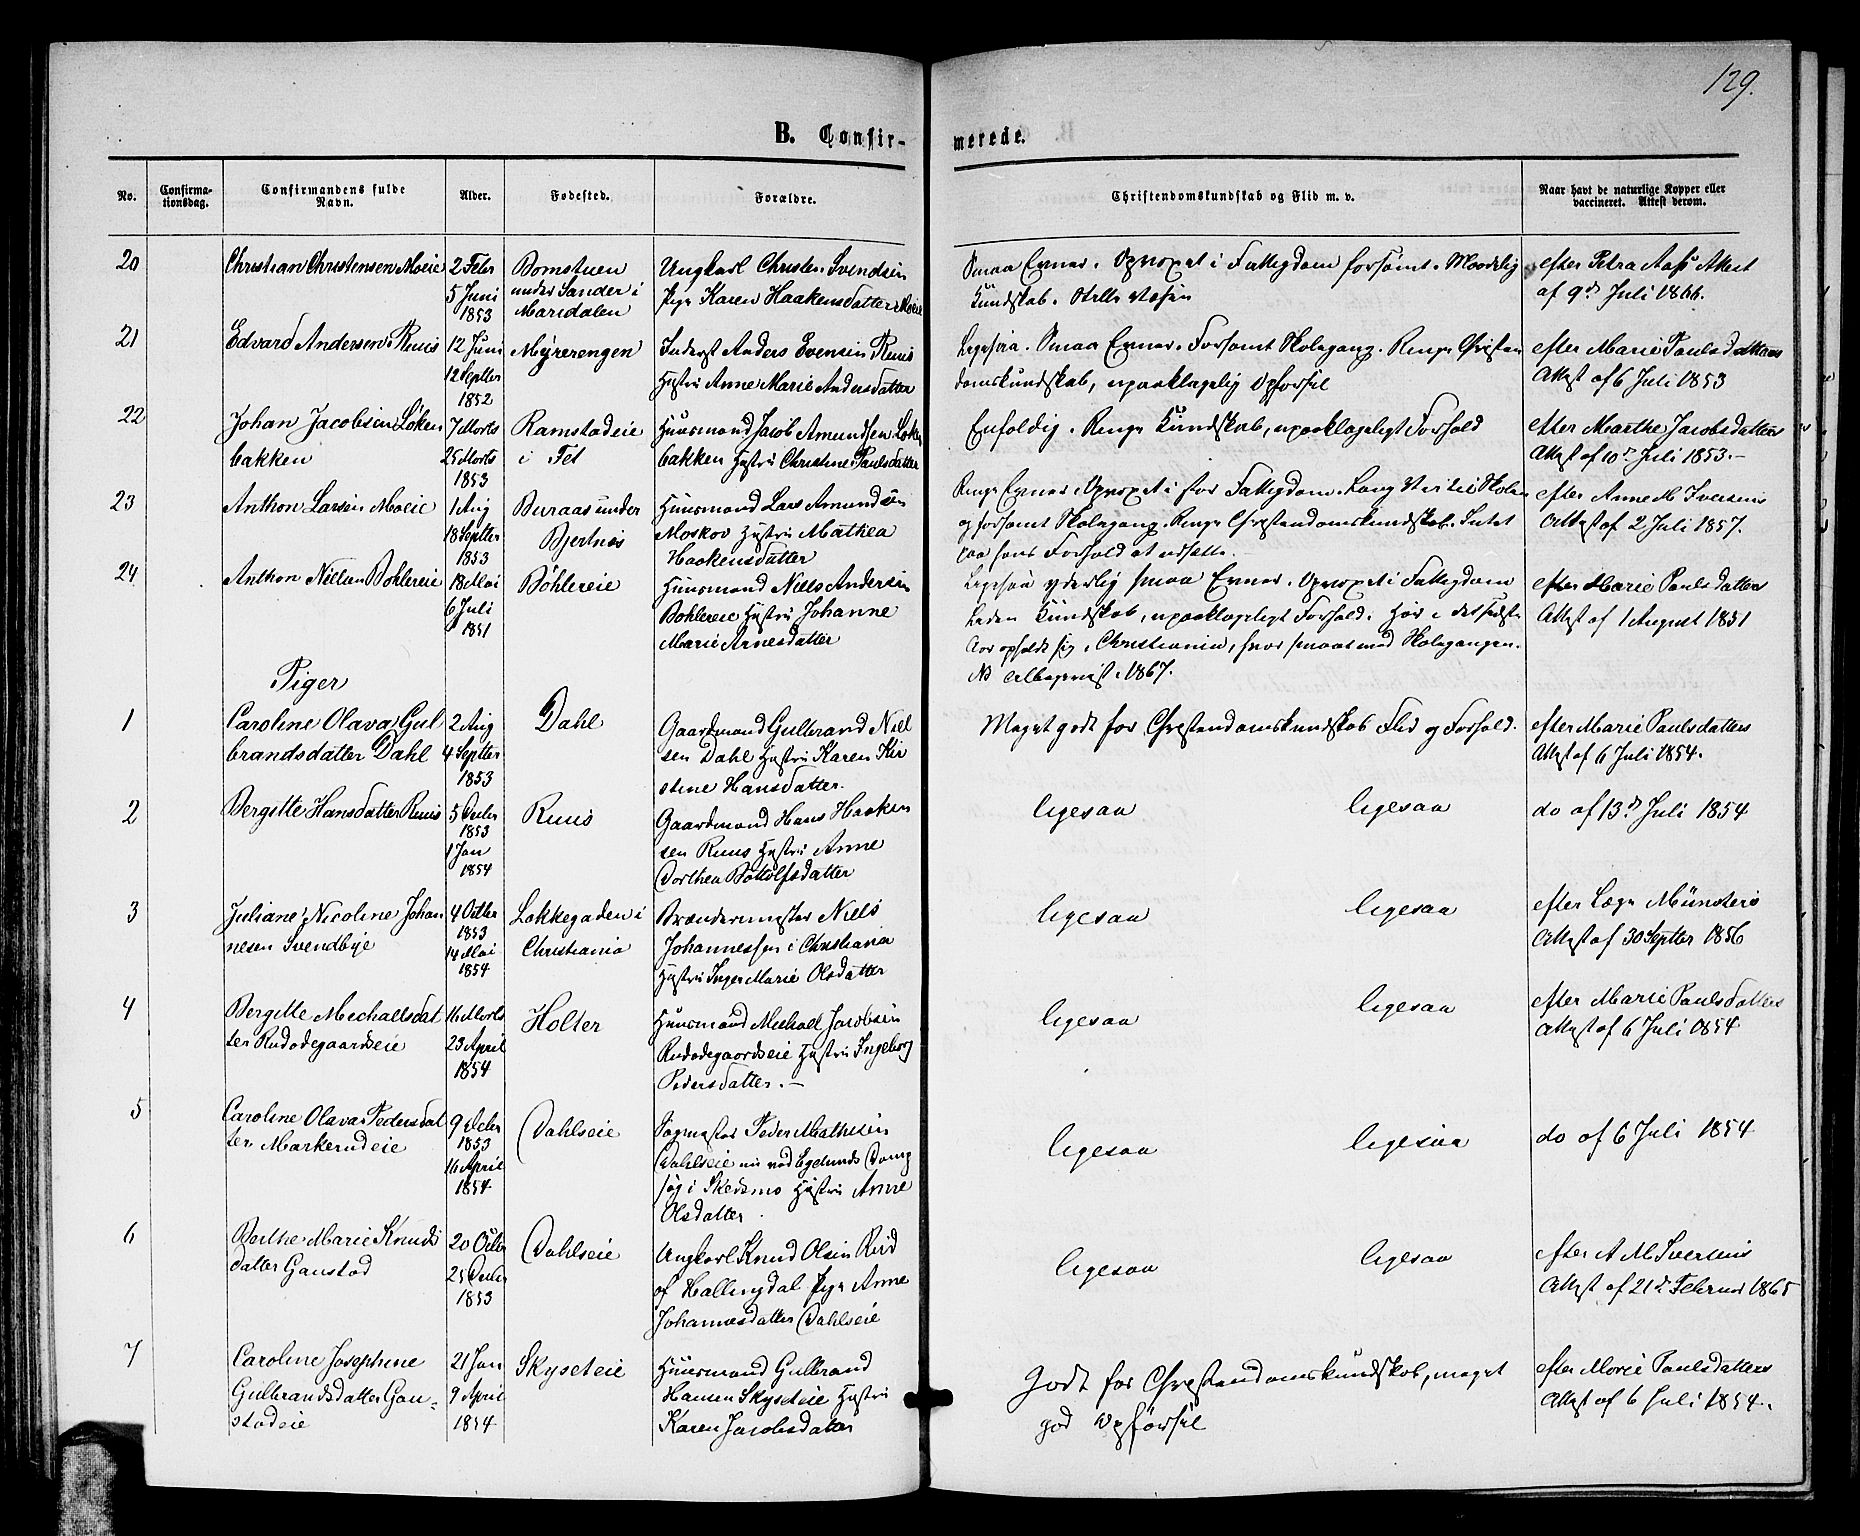 129.
B. Confir-
merede.
No.
Confirma-
tionsdag.
Confirmandens fulde
Navn.
Alder.
Fødested.
Forældre.
Christendomskundskab og Flid m. v.
Naar havt de naturlige Kopper eller
vaccineret. Attest derom.
20
Christian Christensen Moeie
2 Febr
5 Juni
1853
Bomstuen
under Sander i
Maridalen
Ungkarl Christen Svendsen
Pige Karen Haakensdatter Moeie
Smaa Evner. Opvoxet i Fattigdom forsømt. Maadelig
Kundskab. Stille Væsen
efter Petra Aass Attest
af 9de Juli 1866.
21
Edvard Andersen Ruus
12 Juni
12 Septbr
1852
Myrerengen
Inderst Anders Evensen Ruus
Hustru Anne Marie Andersdatter
Ligesaa. Smaa Evner. Forsømt Skolegang. Ringe Christen
domskundskab, upaaklagelig Opførsel
efter Marie Paulsdatters
Attest af 6 Juli 1853
22
Johan Jacobsen Løken
bakken
7 Marts
25 Marts
1853
Ramstadeie
i Fet
Huusmand Jacob Amundsen Løken
bakken Hustru Christine Paulsdatter
Enfoldig. Ringe Kundskab, upaaklageligt Forhold
efter Marthe Jacobsdatters
Attest af 10de Juli 1853.-
23
Anthon Larsen Moeie
1 Aug
18 Septbr
1853
Buraas under
Bjertnæs
Huusmand Lars Amundsen
Moskov Hustru Mathea
Haakensdatter
Ringe Evner. Opvoxet i stor Fattigdom. Lang Vei til Skolen
og forsømt Skolegang. Ringe Christendomskundskab. Intet
paa hans Forhold at udsætte.
efter Anne M Iversens
Attest af 2 Juli 1857.
24
Anthon Nielsen Bøhlereie
18 Mai
6 Juli
1851
Bøhlereie
Huusmand Niels Andersen
Bøhlereie Hustru Johanne
Marie Arnesdatter
Ligesaa yderlig smaa Evner. Opvoxet i Fattigdom
Liden Kundskab, upaaklageligt Forhold. Har i det sidste
Aar opholdt sig i Christiania, hvor smaat med Skolegangen.
NB Afbeviist 1867.
Piger
1
Caroline Olava Gul
brandsdatter Dahl
2 Aug
4 Septbr
1853
Dahl
Gaardmand Gulbrand Niel
sen Dahl Hustru Karen Kir
stine Hansdatter.
Meget godt for Christendomskundskab Flid og Forhold.
efter Marie Paulsdatters
Attest af 6 Juli 1854.
2
Bergitte Hansdatter Ruus
5 Decbr
1853
1 Jan
1854
Ruus
Gaardmand Hans Haaken
sen Ruus Hustru Anne
Dorthea Bottolfsdatter
ligesaa
ligesaa
do af 13de Juli 1854
3
Juliane Nicoline Johan
nesen Svendbye
4 Octbr
1853
14 Mai
1854
Løkkegaden i
Christiania
Brændermester Niels
Johannessen i Christiania
Hustru Inger Marie Olsdatter
ligesaa
ligesaa
efter Læge Münsters
Attest af 30 Septbr 1856
4
Bergitte Michaelsdat
ter Rudodegaardseie
16 Marts
23 April
1854
Holter
Huusmand Michael Jacobsen
Rudodegaardseie Hustru Ingeborg
Pedersdatter.-
ligesaa
ligesaa
efter Marie Paulsdatters
Attest af 6 Juli 1854
5
Caroline Olava Pedersdat
ter Markerudeie
9 Octbr
1853
16 April
1854
Dahlseie
Sagmester Peder Mathisen
Dahlseie nu ved Egelunds Damp
sag i Skedsmo Hustru Anne
Olsdatter
ligesaa
ligesaa
do af 6 Juli 1854
6
Berthe Marie Knuds
datter Ganstad
20 Octbr
25 Decbr
1853
Dahlseie
Ungkarl Knud Olsen Rud
af Hallingdal Pige Anne
Johannesdatter Dahlseie
ligesaa
ligesaa
efter A M Iversens
Attest af 21de Februar 1865
7
Caroline Josephine
Gulbrandsdatter Gan-
stadeie
21 Jan
9 April
1854
Skyseteie
Huusmand Gulbrand
Hansen Skyseteie Hustru
Karen Jacobsdatter
Godt for Christendomskundskab, meget
god Opførsel
efter Marie Paulsdatters
Attest af 6 Juli 1854.